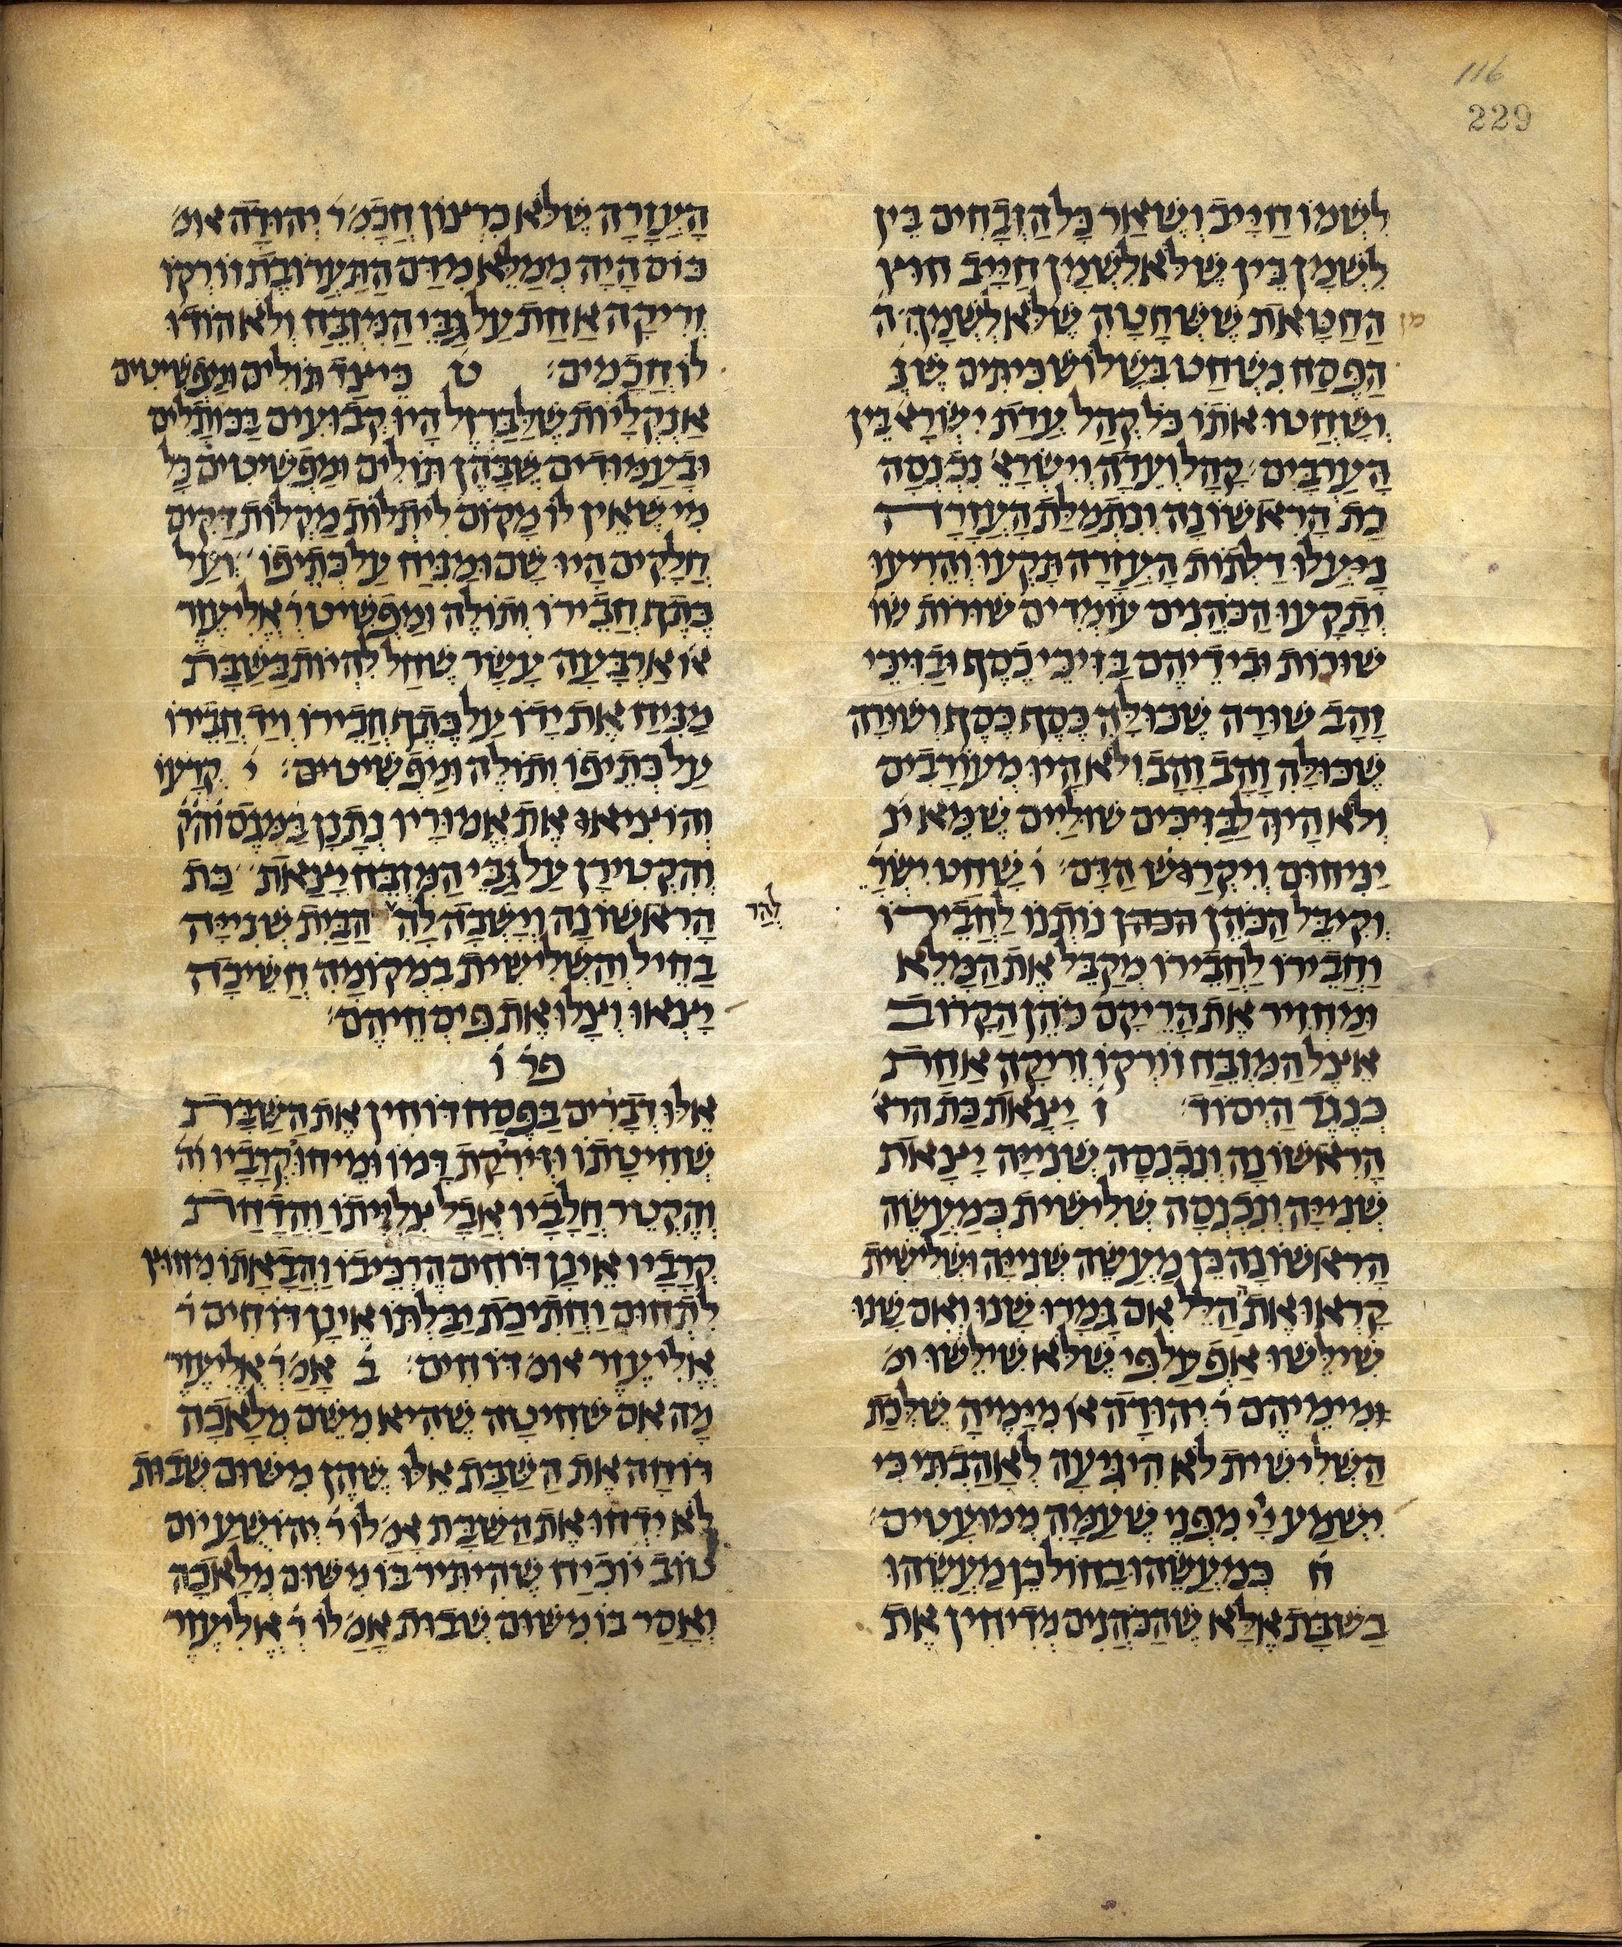 116
229
לִשְׁמוֹ חַיָּיב וּשְׁאַר כָּל הַזְּבָחִים בֵּין
לִשְׁמָן בֵּין שֶׁלֹּא לִשְׁמָן חַיָּיב חוּץ
מן
הַחַטָּאת שֶׁשְּׁחָטָהּ שֶׁלֹּא לִשְׁמָהּ ה
הַפֶּסַח נִשְׁחַט בְּשָׁלוֹשׁ כִּיתִּים שֶׁנֶּ
וְשָׁחֲטוּ אֹתוֹ כֹּל קְהַל עֲדַת יִשְׂרָא בֵּין
הָעַרְבָּיִם קָהָל וְעֵדָה וְיִשְׂרָא נִכְנְסָה
כַת הָרִאשׁוֹנָה וְנִתְמַלֵּאת הָעֲזָרָה
נִנְעֲלוּ דַּלְתוֹת הָעֲזָרָה תָּקְעוּ וְהֵרִיעוּ
וְתָקְעוּ הַכֹּהֲנִים עוֹמְדִים שׁוּרוֹת שׁוּ
שׁוּרוֹת וּבִידֵיהֶם בָּזִיכֵי כֶסֶף וּבָזִיכֵי
זָהָב שׁוּרָה שֶׁכּוּלָּהּ כֶּסֶף כֶּסֶף וְשׁוּרָה
שֶׁכּוּלָּהּ זָהָב זָהָב וְלֹא הָיוּ מְעוֹרָבִים
וְלֹא הָיָה לַבָּזִיכִים שׁוּלַיִים שֶׁמָּא יַנ
יַנִיחוּם וְיִקְרַשׁ הַדָּם ו שָׁחַט יִשְׂרָ
וְקִיבֵּל הַכֹּהֵן הכהן נוֹתְנוֹ לַחֲבֵירוֹ
וַחֲבֵירוֹ לַחֲבֵירוֹ מְקַבֵּל אֶת הַמָּלֵא
וּמַחְזִיר אֶת הָרֵיקָם כֹּהֵן הַקָּרוֹב
אֵצֶל הַמִּזְבֵּחַ זוֹרְקוֹ זְרִיקָה אַחַת
כְּנֶגֶד הַיְסוֹד ז יָצָאת כַּת הרא
הָרִאשׁוֹנָה וְנִכְנְסָה שְׁנִייָּה יָצָאת
שְׁנִייָּה וְנִכְנְסָה שְׁלִישִׁית כְּמַעֲשֵׂה
הָרִאשׁוֹנָה כֵּן מַעֲשֵׂה שְׁנִייָּה וּשְׁלִישִׁית
קָרְאוּ אֶת הַלֵּל אִם גָּמְרוּ שָׁנוּ וְאִם שָׁנוּ
שִׁילְּשׁוּ אַף עַל פִּי שֶׁלֹּא שִׁילְּשׁוּ מ
מִימֵיהֶם ר יְהוּדָה או מִיָּמֶיהָ שֶׁלְּכַת
הַשְּׁלִישִׁית לֹא הִיגִּיעָה לְאָהַבְתִּי כִּי
יִשְׁמַע יְיָ מִפְּנֵי שֶׁעַמָּהּ מְמוּעָטִים
ח כְּמַעֲשֵׂהוּ בַחוֹל כֵּן מַעֲשֵׂהוּ
בַשַּׁבָּת אֶלָּא שֶׁהַכֹּהֲנִים מְדִיחִין אֶת
הָעֲזָרָה שֶׁלֹּא כִרְצוֹן חֲכָמ ר יְהוּדָה אומ
כּוֹס הָיָה מְמַלֵּא מִדַּם הַתַּעֲרוֹבֶת זוֹרְקוֹ
זְרִיקָה אַחַת עַל גַּבֵּי הַמִּזְבֵּחַ וְלֹא הוֹדוּ
לוֹ חֲכָמִים ט כֵּיצַד תּוֹלִים וּמַפְשִׁיטִים
אַנְקְלָיוֹת שֶׁלַּבַּרְזֶל הָיוּ קְבוּעִים בַּכּוֹתָלִים
וּבָעַמּוּדִים שֶׁבָּהֶן תּוֹלִים וּמַפְשִׁיטִים כָּל
מִי שֶׁאֵין לוֹ מָקוֹם לִיתְלוֹת מַקְלוֹת דַּקִּים
חֲלָקִים הָיוּ שָׁם וּמַנִּיחַ עַל כְּתֵיפוֹ וְעַל
כֶּתֶף חֲבֵירוֹ וְתוֹלֶה וּמַפְשִׁיט ר אֱלִיעֶזֶר
או אַרְבָּעָה עָשָׂר שֶׁחַל לִהְיוֹת בַּשַּׁבָּת
מַנִּיחַ אֶת יָדוֹ עַל כֶּתֶף חֲבֵירוֹ וְיַד חֲבֵירוֹ
עַל כְּתֵיפוֹ וְתוֹלֶה וּמַפְשִׁיטִים י קְרָעוֹ
וְהוֹצִיאוּ אֶת אֵמוּרָיו נְתָנָן בַּמָּגֵס והק
וְהִקְטִירָן עַל גַּבֵּי הַמִּזְבֵּחַ יָצָאת כַּת
להר
הָרִאשׁוֹנָה וְיָשְׁבָה לָהּ הַבַּיִת שְׁנִייָּה
בַחֵיל וְהַשְּׁלִישִׁית בִּמְקוֹמָהּ חֲשֵׁיכָה
יָצְאוּ וְצָלוּ אֶת פִּיסְחֵיהֶם
פר ו
אֵלּוּ דְבָרִים בַּפֶּסַח דּוֹחִין אֶת הַשַּׁבָּת
שְׁחִיטָתוֹ וּזְרִיקַת דָּמוֹ וּמִיחוּי קְרָבָיו וה
וְהֶקְטֵר חֲלָבָיו אֲבָל צְלִוּיָּתוֹ וַהֲדָחַת
קְרָבָיו אֵינָן דּוֹחִים הֶרְכֵּיבוֹ וַהֲבָאָתוֹ מִחוּץ
לִתְחוּם וַחֲתִיכַת יַבַּלְתּוֹ אֵינָן דּוֹחִים ר
אֱלִיעֶזֶר אומ דּוֹחִים ב אָמַ ר אֱלִיעֶזֶר
מָה אִם שְׁחִיטָה שֶׁהִיא מִשֵּׁם מְלָאכָה
דּוֹחָה אֶת הַשַּׁבָּת אֵלּוּ שֶׁהֶן מִשּׁוּם שְׁבוּת
לֹא יִדְחוּ אֶת הַשַּׁבָּת אָמ לוֹ ר יְהוֹשֻׁעַ יוֹם
טוֹב יוֹכִיחַ שֶׁהִיתִּיר בּוֹ מִשּׁוּם מְלָאכָה
וְאָסַר בּוֹ מִשּׁוּם שְׁבוּת אָמַ לוֹ ר אֱלִיעֶזֶר